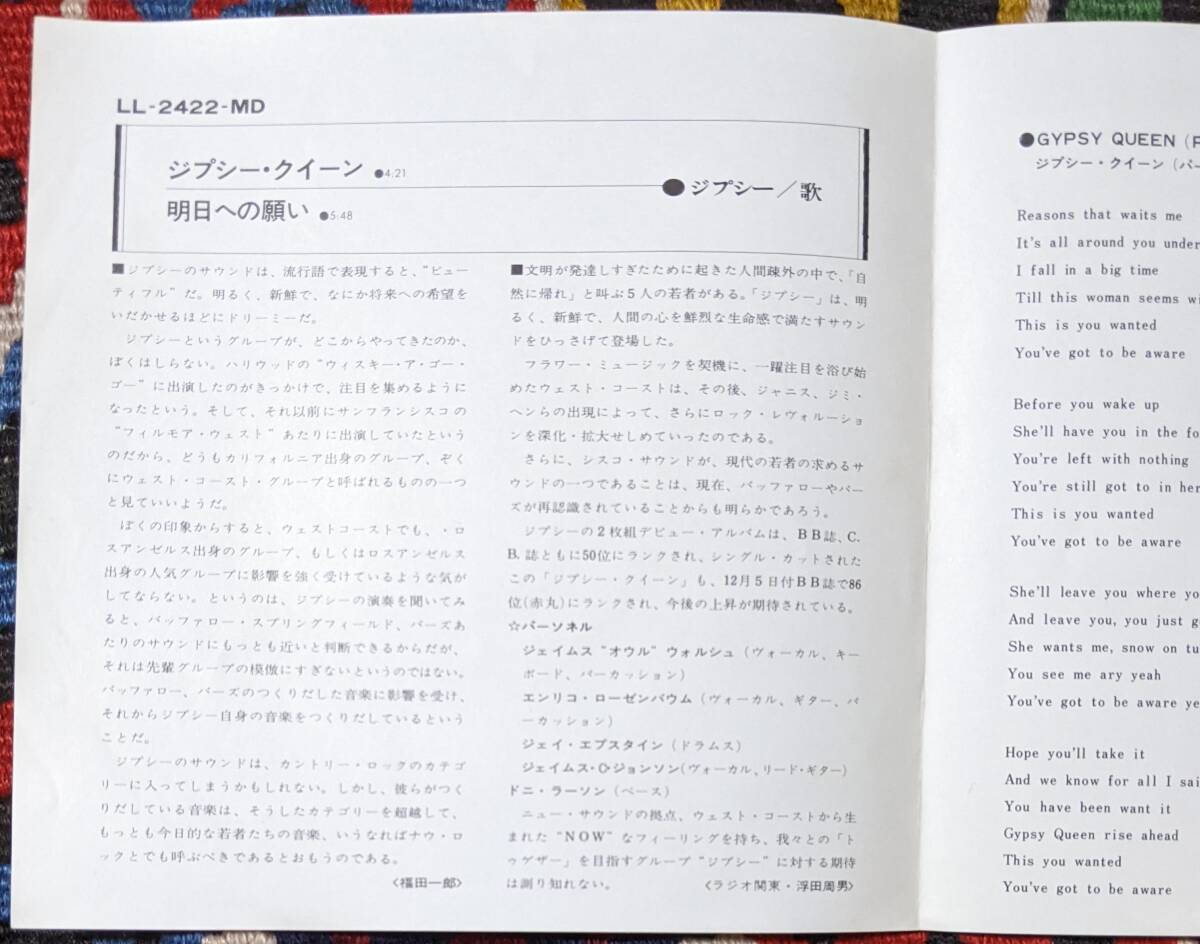 LL-2422-MD
ジプシー・クイーン ●4:21
明日への願い ●5:48
●ジプシー／歌
■ジプシーのサウンドは、流行語で表現すると、“ビュー
ティフル”だ。明るく、新鮮で、なにか将来への希望を
いだかせるほどにドリーミーだ。
ジプシーというグループが、どこからやってきたのか、
ぼくはしらない。ハリウッドの“ウィスキー・ア・ゴー・
ゴー”に出演したのがきっかけで、注目を集めるように
なったという。そして、それ以前にサンフランシスコの
“フィルモア・ウェスト”あたりに出演していたという
のだから、どうもカリフォルニア出身のグループ、ぞく
にウェスト・コースト・グループと呼ばれるものの一つ
と見ていいようだ。
ぼくの印象からすると、ウェストコーストでも、・ロ
スアンゼルス出身のグループ、もしくはロスアンゼルス
出身の人気グループに影響を強く受けているような気が
してならない。というのは、ジプシーの演奏を聞いてみ
ると、バッファロー・スプリングフィールド、バーズあ
たりのサウンドにもっとも近いと判断できるからだが、
それは先輩グループの模倣にすぎないというのではない。
バッファロー、バーズのつくりだした音楽に影響を受け、
それからジプシー自身の音楽をつくりだしているという
ことだ。
ジプシーのサウンドは、カントリー・ロックのカテゴ
リーに入ってしまうかもしれない。しかし、彼らがつく
りだしている音楽は、そうしたカテゴリーを超越して、
もっとも今日的な若者たちの音楽、いうなればナウ・ロ
ックとでも呼ぶべきであるとおもうのである。
〈福田一郎〉
■文明が発達しすぎたために起きた人間疎外の中で、「自
然に帰れ」と叫ぶ５人の若者がある。「ジプシー」は、明
るく、新鮮で、人間の心を鮮烈な生命感で満たすサウン
ドをひっさげて登場した。
フラワー・ミュージックを契機に、一躍注目を浴び始
めたウェスト・コーストは、その後、ジャニス、ジミ・
ヘンらの出現によって、さらにロック・レヴォルーショ
ンを深化・拡大せしめていったのである。
さらに、シスコ・サウンドが、現代の若者の求めるサ
ウンドの一つであることは、現在、バッファローやバー
ズが再認識されていることからも明らかであろう。
ジプシーの２枚組デビュー・アルバムは、ＢＢ誌、C.
B.誌ともに50位にランクされ、シングル・カットされた
この「ジプシー・クイーン」も、12月５日付ＢＢ誌で86
位(赤丸)にランクされ、今後の上昇が期待されている。
☆パーソネル
ジェイムス“オウル”ウォルシュ（ヴォーカル、キー
ボード、パーカッション）
エンリコ・ローゼンバウム（ヴォーカル、ギター、パ
ーカッション）
ジェイ・エプスタイン（ドラムス）
ジェイムス・C・ジョンソン(ヴォーカル、リード・ギター)
ドニ・ラーソン（ベース）
ニュー・サウンドの拠点、ウェスト・コーストから生
まれた“NOW”なフィーリングを持ち、我々との「ト
ゥゲザー」を目指すグループ“ジプシー”に対する期待
は測り知れない。
〈ラジオ関東・浮田周男〉
●GYPSY QUEEN (P
ジプシー・クイーン（パー
Reasons that waits me
It's all around you under
I fall in a big time
Till this woman seems wi
This is you wanted
You've got to be aware
Before you wake up
She'll have you in the fo
You're left with nothing
You're still got to in her
This is you wanted
You've got to be aware
She'll leave you where yo
And leave you, you just g
She wants me, snow on tu
You see me ary yeah
You've got to be aware ye
Hope you'll take it
And we know for all I sai
You have been want it
Gypsy Queen rise ahead
This you wanted
You've got to be aware